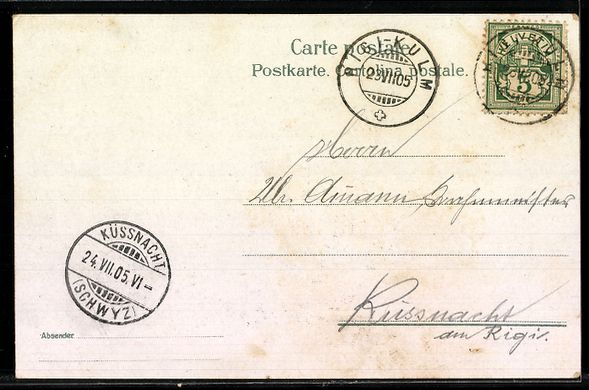 Carte postale.
Postkarte. Cartolina postale.
RIGI-KULM
23 VII 05
HELVETIA
5
Herrn
Ul. Amann, Bahnmeister
KÜSSNACHT
24.VII.05.VI-
(SCHWYZ)
Küssnacht
am Rigi.
Absender